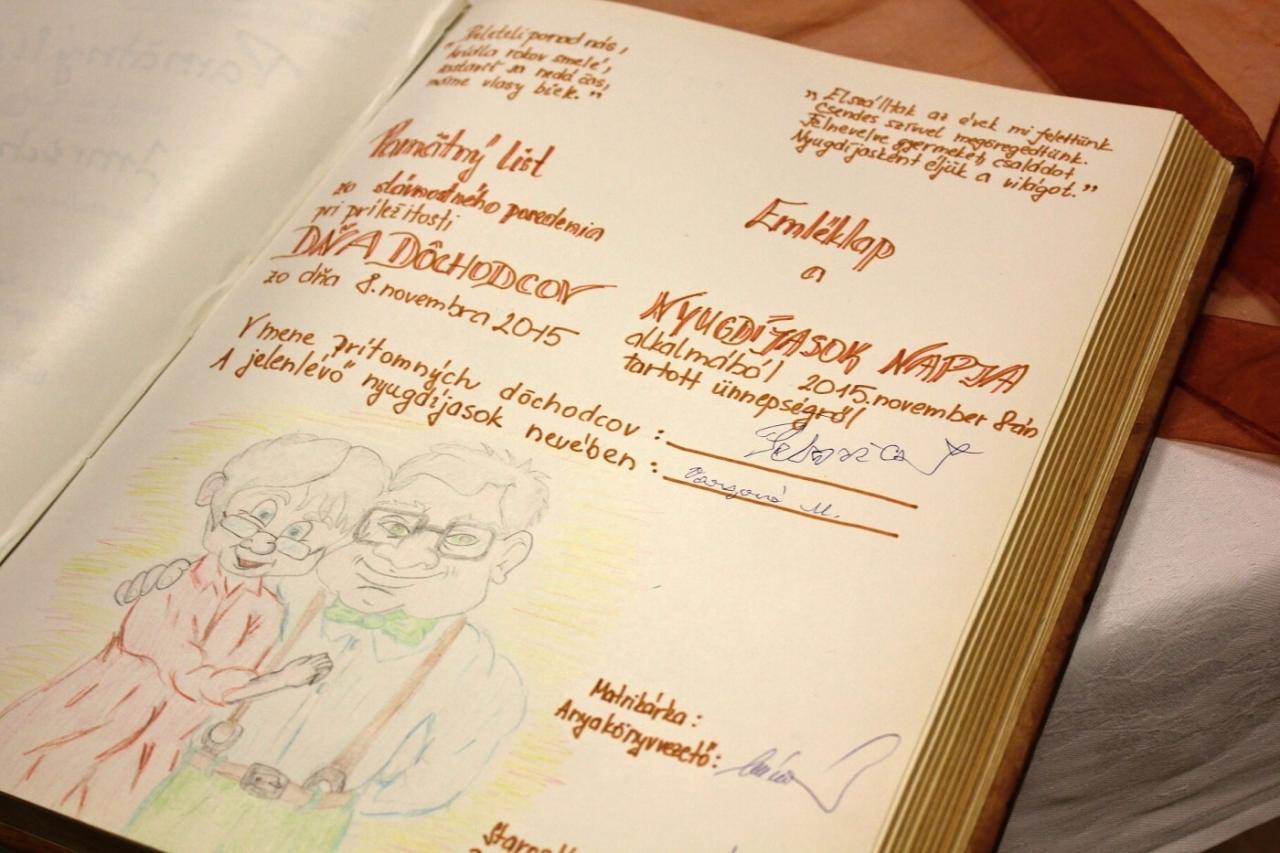 Preleteli ponad nás,
"krídla rokov smelé,
zastaviť sa nedá čas,
máme vlasy biele."
"Elszálltak az évek mi felettünk
Csendes szívvel megöregedtünk.
Felnevelve gyermeket, családot,
Nyugdíjasként éljük a világot."
Pamätný list
zo slávnostného posedenia
pri príležitosti
DŇA DÔCHODCOV
zo dňa 8. novembra 2015
Emléklap
a
NYUGDÍJASOK NAPJA
alkalmából 2015. november 8án
tartott ünnepségről
V mene prítomných dôchodcov :
A jelenlévő nyugdíjasok nevében :
Vargová M.
Matrikárka :
Anyakönyvvezető :